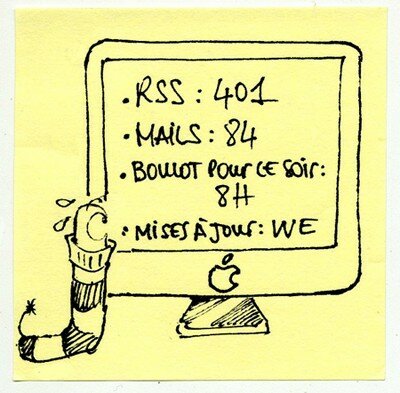 • RSS : 401
• MAILS : 84
• BOULOT POUR CE SOIR :
8H
• MISES À JOUR : WE